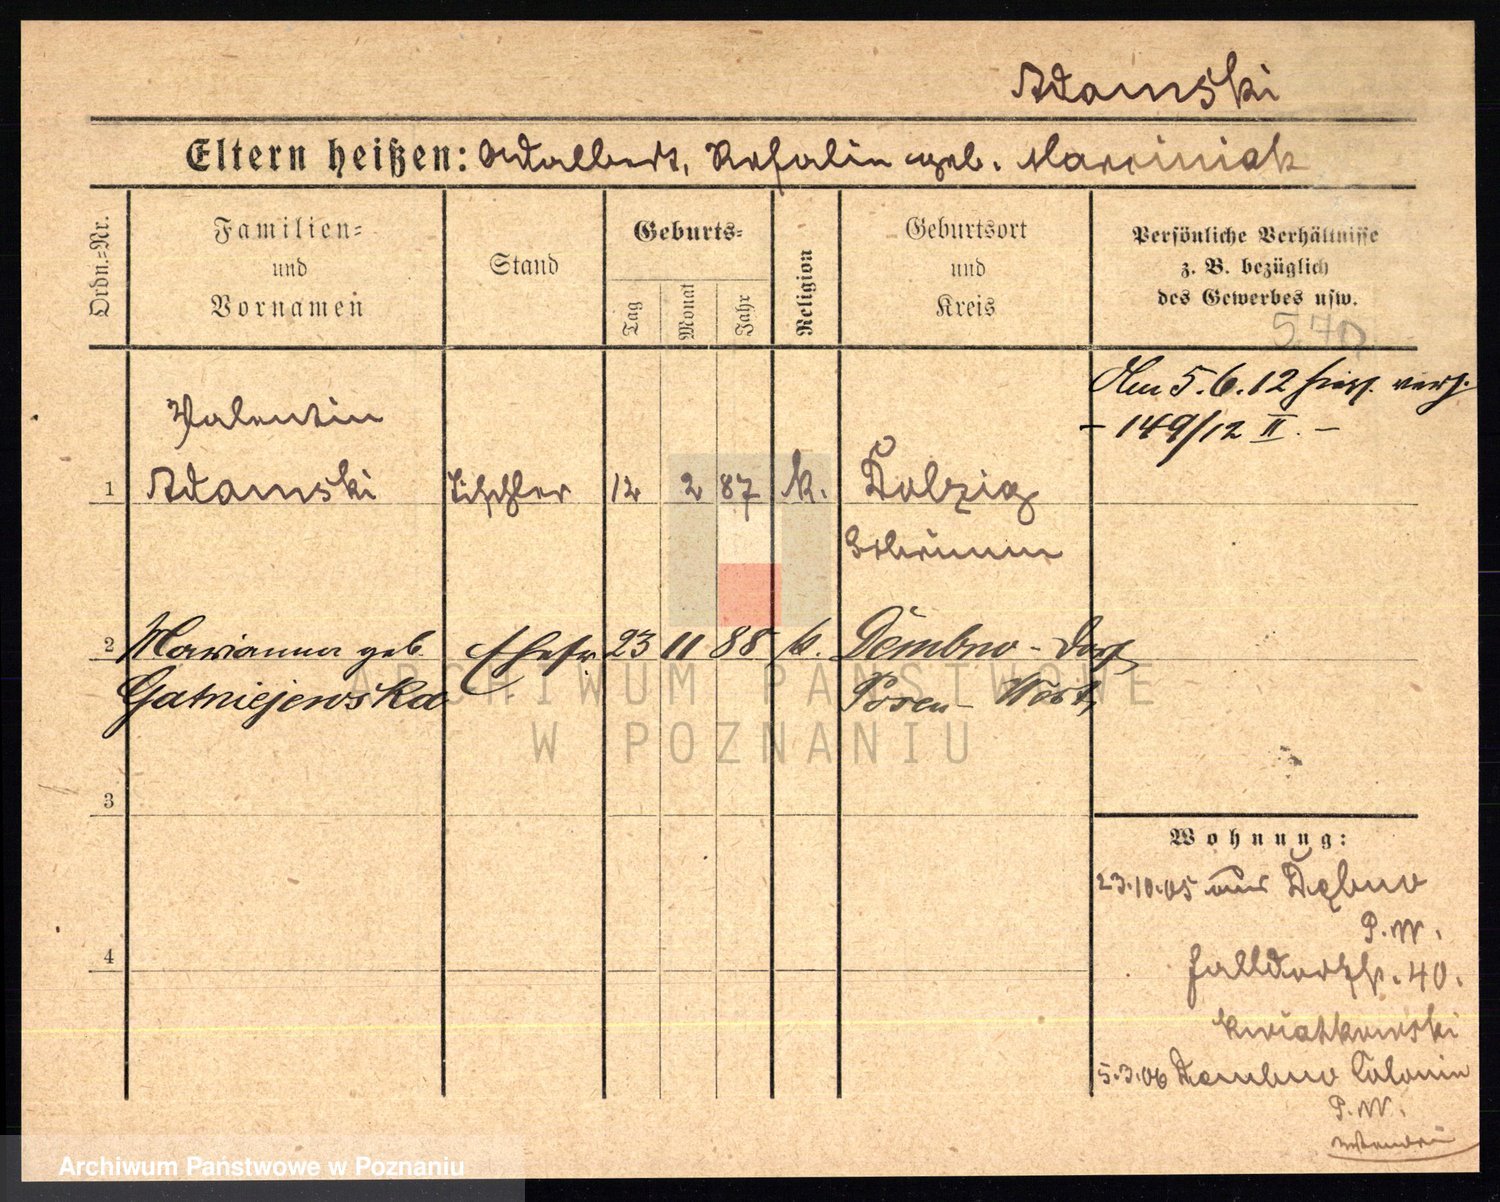 Adamski
Eltern heißen: Adalbert, Rosalie geb. Marciniak
Ordn.=Nr.
Familien=
und
Vornamen
Stand
Geburts=
Tag
Monat
Jahr
Religion
Geburtsort
und
Kreis
Persönliche Verhältnisse
z. B. bezüglich
des Gewerbes usw.
570
Am 5.6.12 verh.
- 149/12 II. -
Valentin
1 Adamski Tischler 12 2 87 k. Dolzig
Schrimm
2 Marianna geb. Ehefr 23 11 88 k. Dembno - Dorf
Gatniejewska Posen - West,
3
4
Wohnung:
23.10.05 aus Dębno
P.W.
Halldorfstr. 40.
Kwiatkowski
5.3.06 Dembno Colonie
P.W.
ARCHIWUM PAŃSTWOWE
W POZNANIU
Archiwum Państwowe w Poznaniu